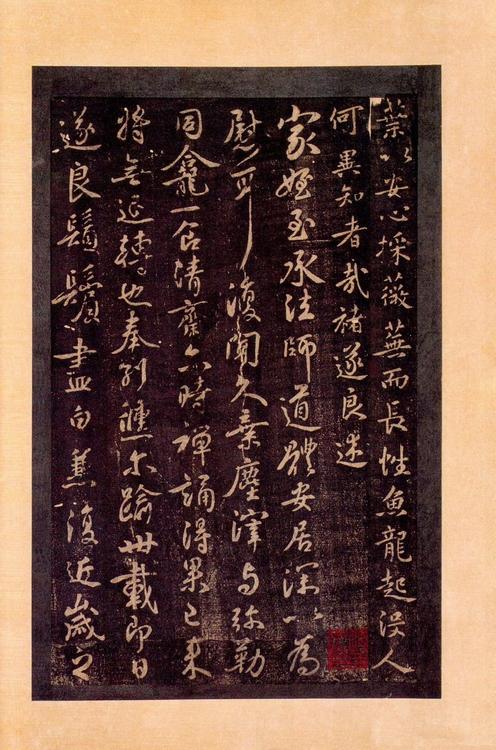 葉以安心採薇蕪而長性魚龍起沒人
何異知者哉褚遂良述
家姪至承法師道體安居深以為
慰耳復聞久棄塵滓与弥勒
同龕一食清齋六時禪誦得果已来
将无退轉也奉別倏尔踰卅載即日
遂良鬚鬢盡白兼復近歲之